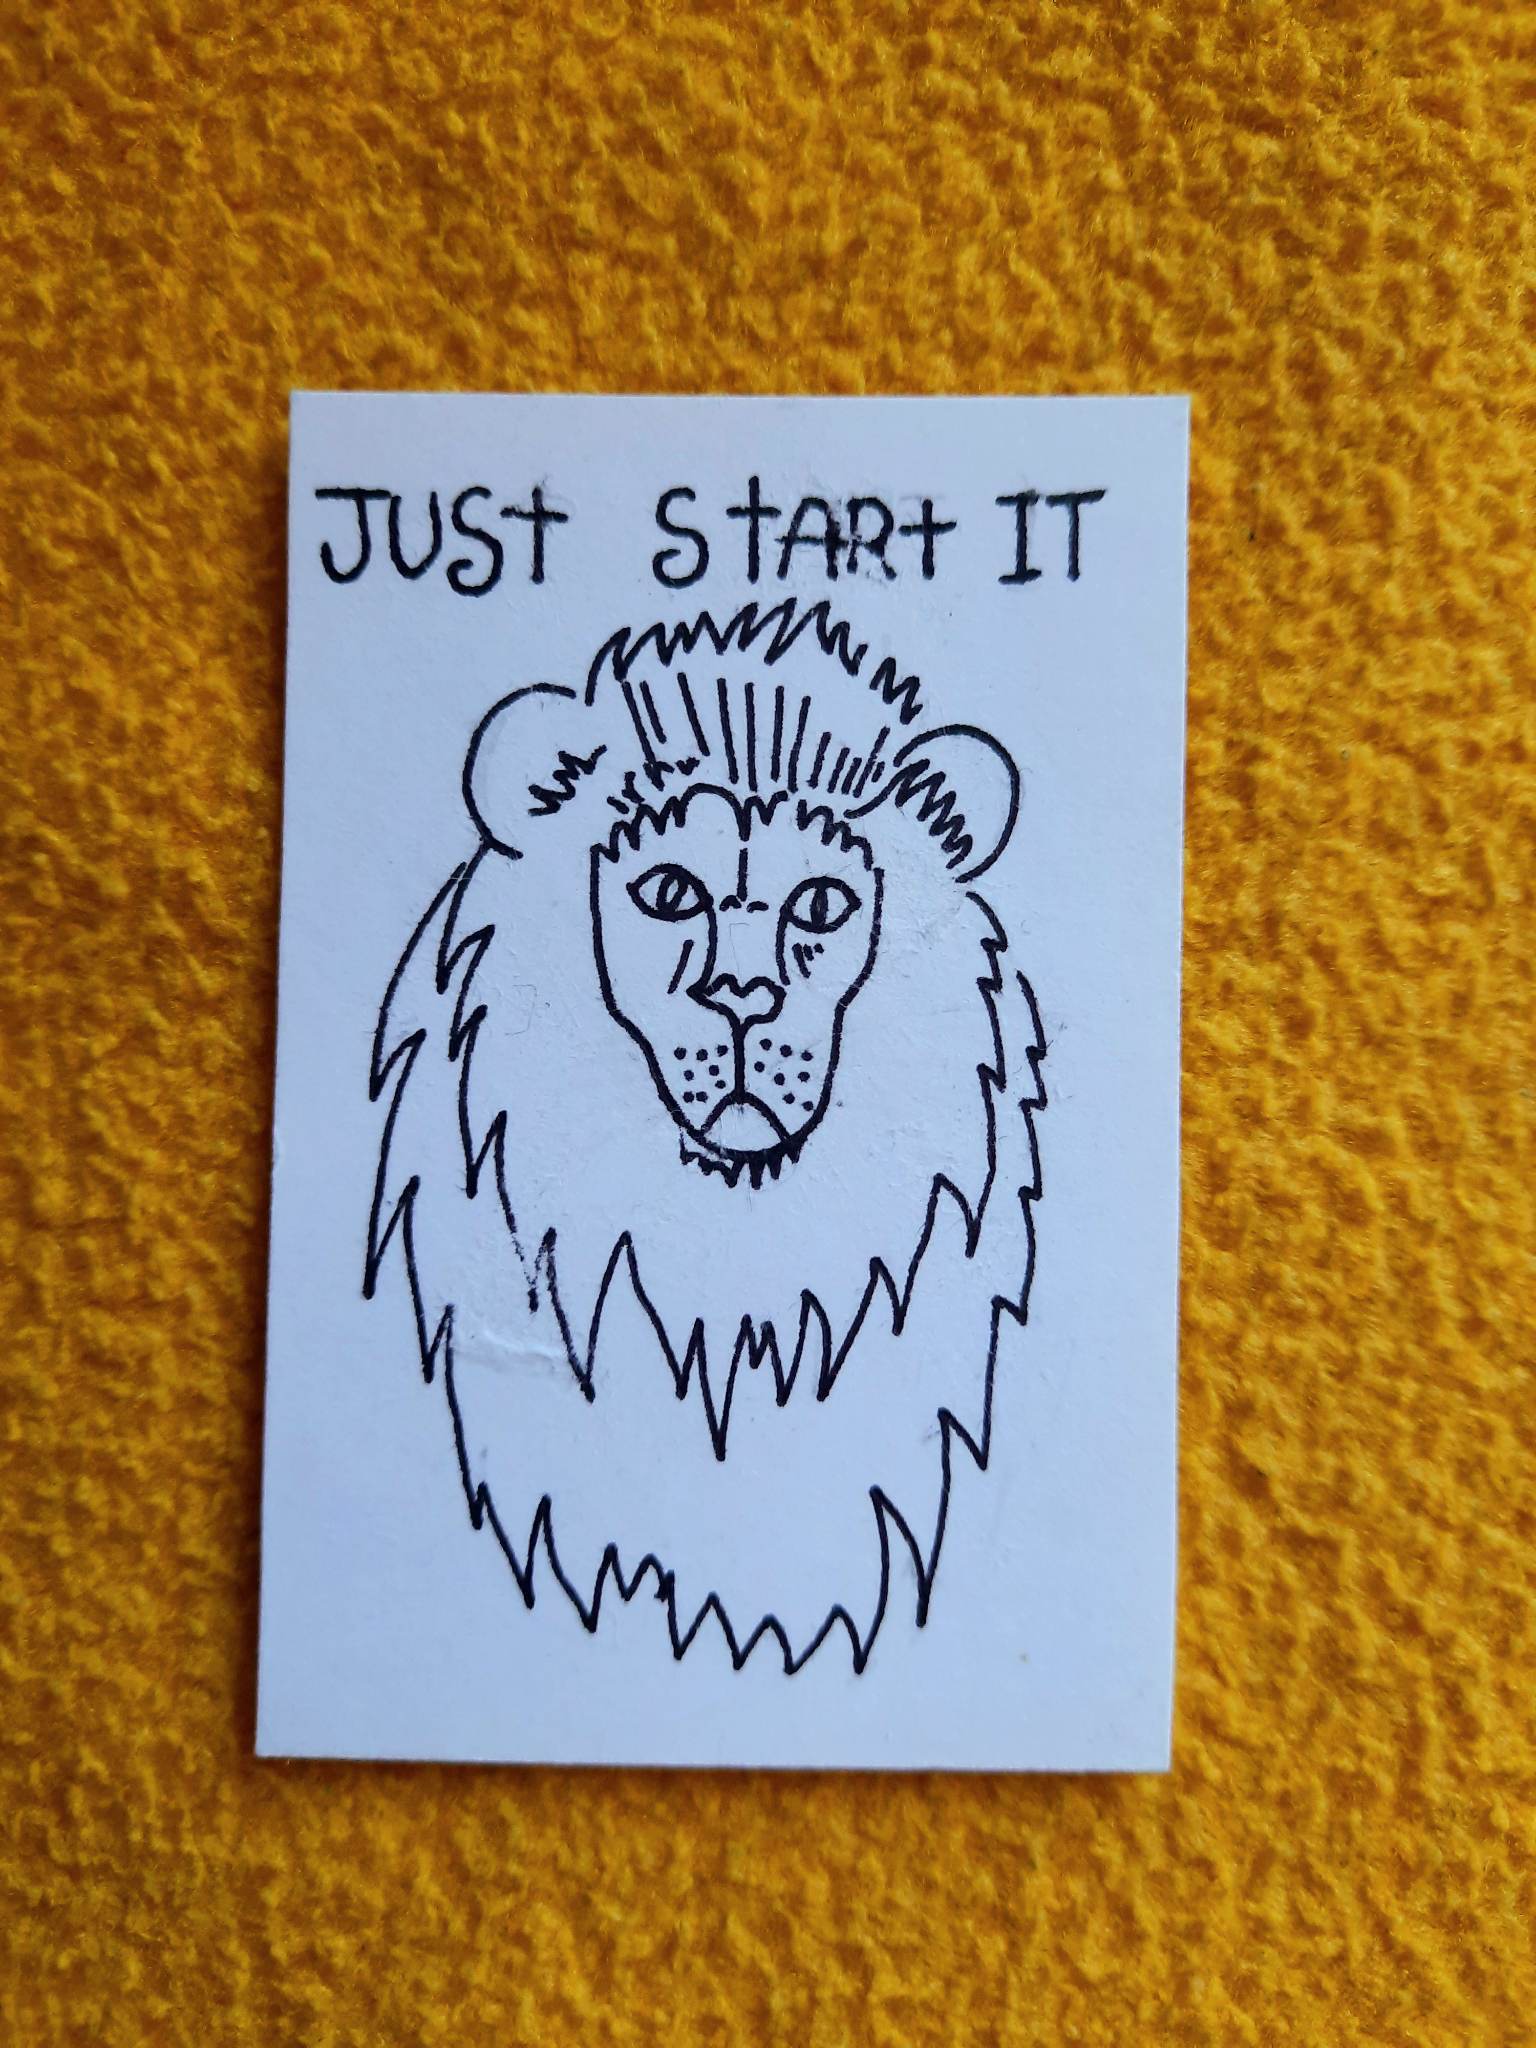 JUSt StARt IT